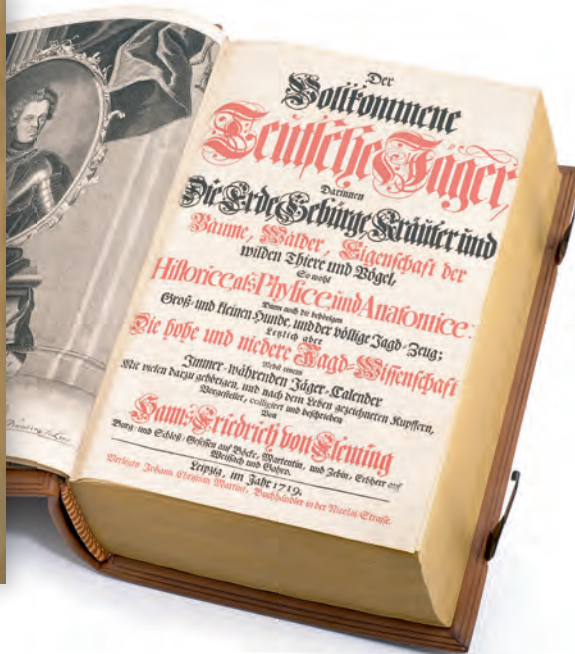 Der
Vollkommene
Teutsche Jäger,
Darinnen
Die Erde, Gebürge, Kräuter und
Bäume, Wälder, Eigenschaft der
wilden Thiere und Vögel,
So wohl
Historice, als Physice, und Anatomice:
Dann auch die behörigen
Groß- und kleinen Hunde, und der völlige Jagd-Zeug;
Letzlich aber
Die hohe und niedere Jagd-Wissenschaft
Nebst einem
Immer-währenden Jäger-Calender
Mit vielen darzu gehörigen, und nach dem Leben gezeichneten Kupffern,
Vorgestellet, colligiret und beschrieben
Von
Hannß Friedrich von Fleming
Burg- und Schloß-Gesessen auf Böcke, Martentin, und Zebin, Erbherr auf
Weissach und Gahro.
Leipzig, im Jahr 1719.
Verlegts Johann Christian Martini, Buchhändler in der Nicolai-Strasse.